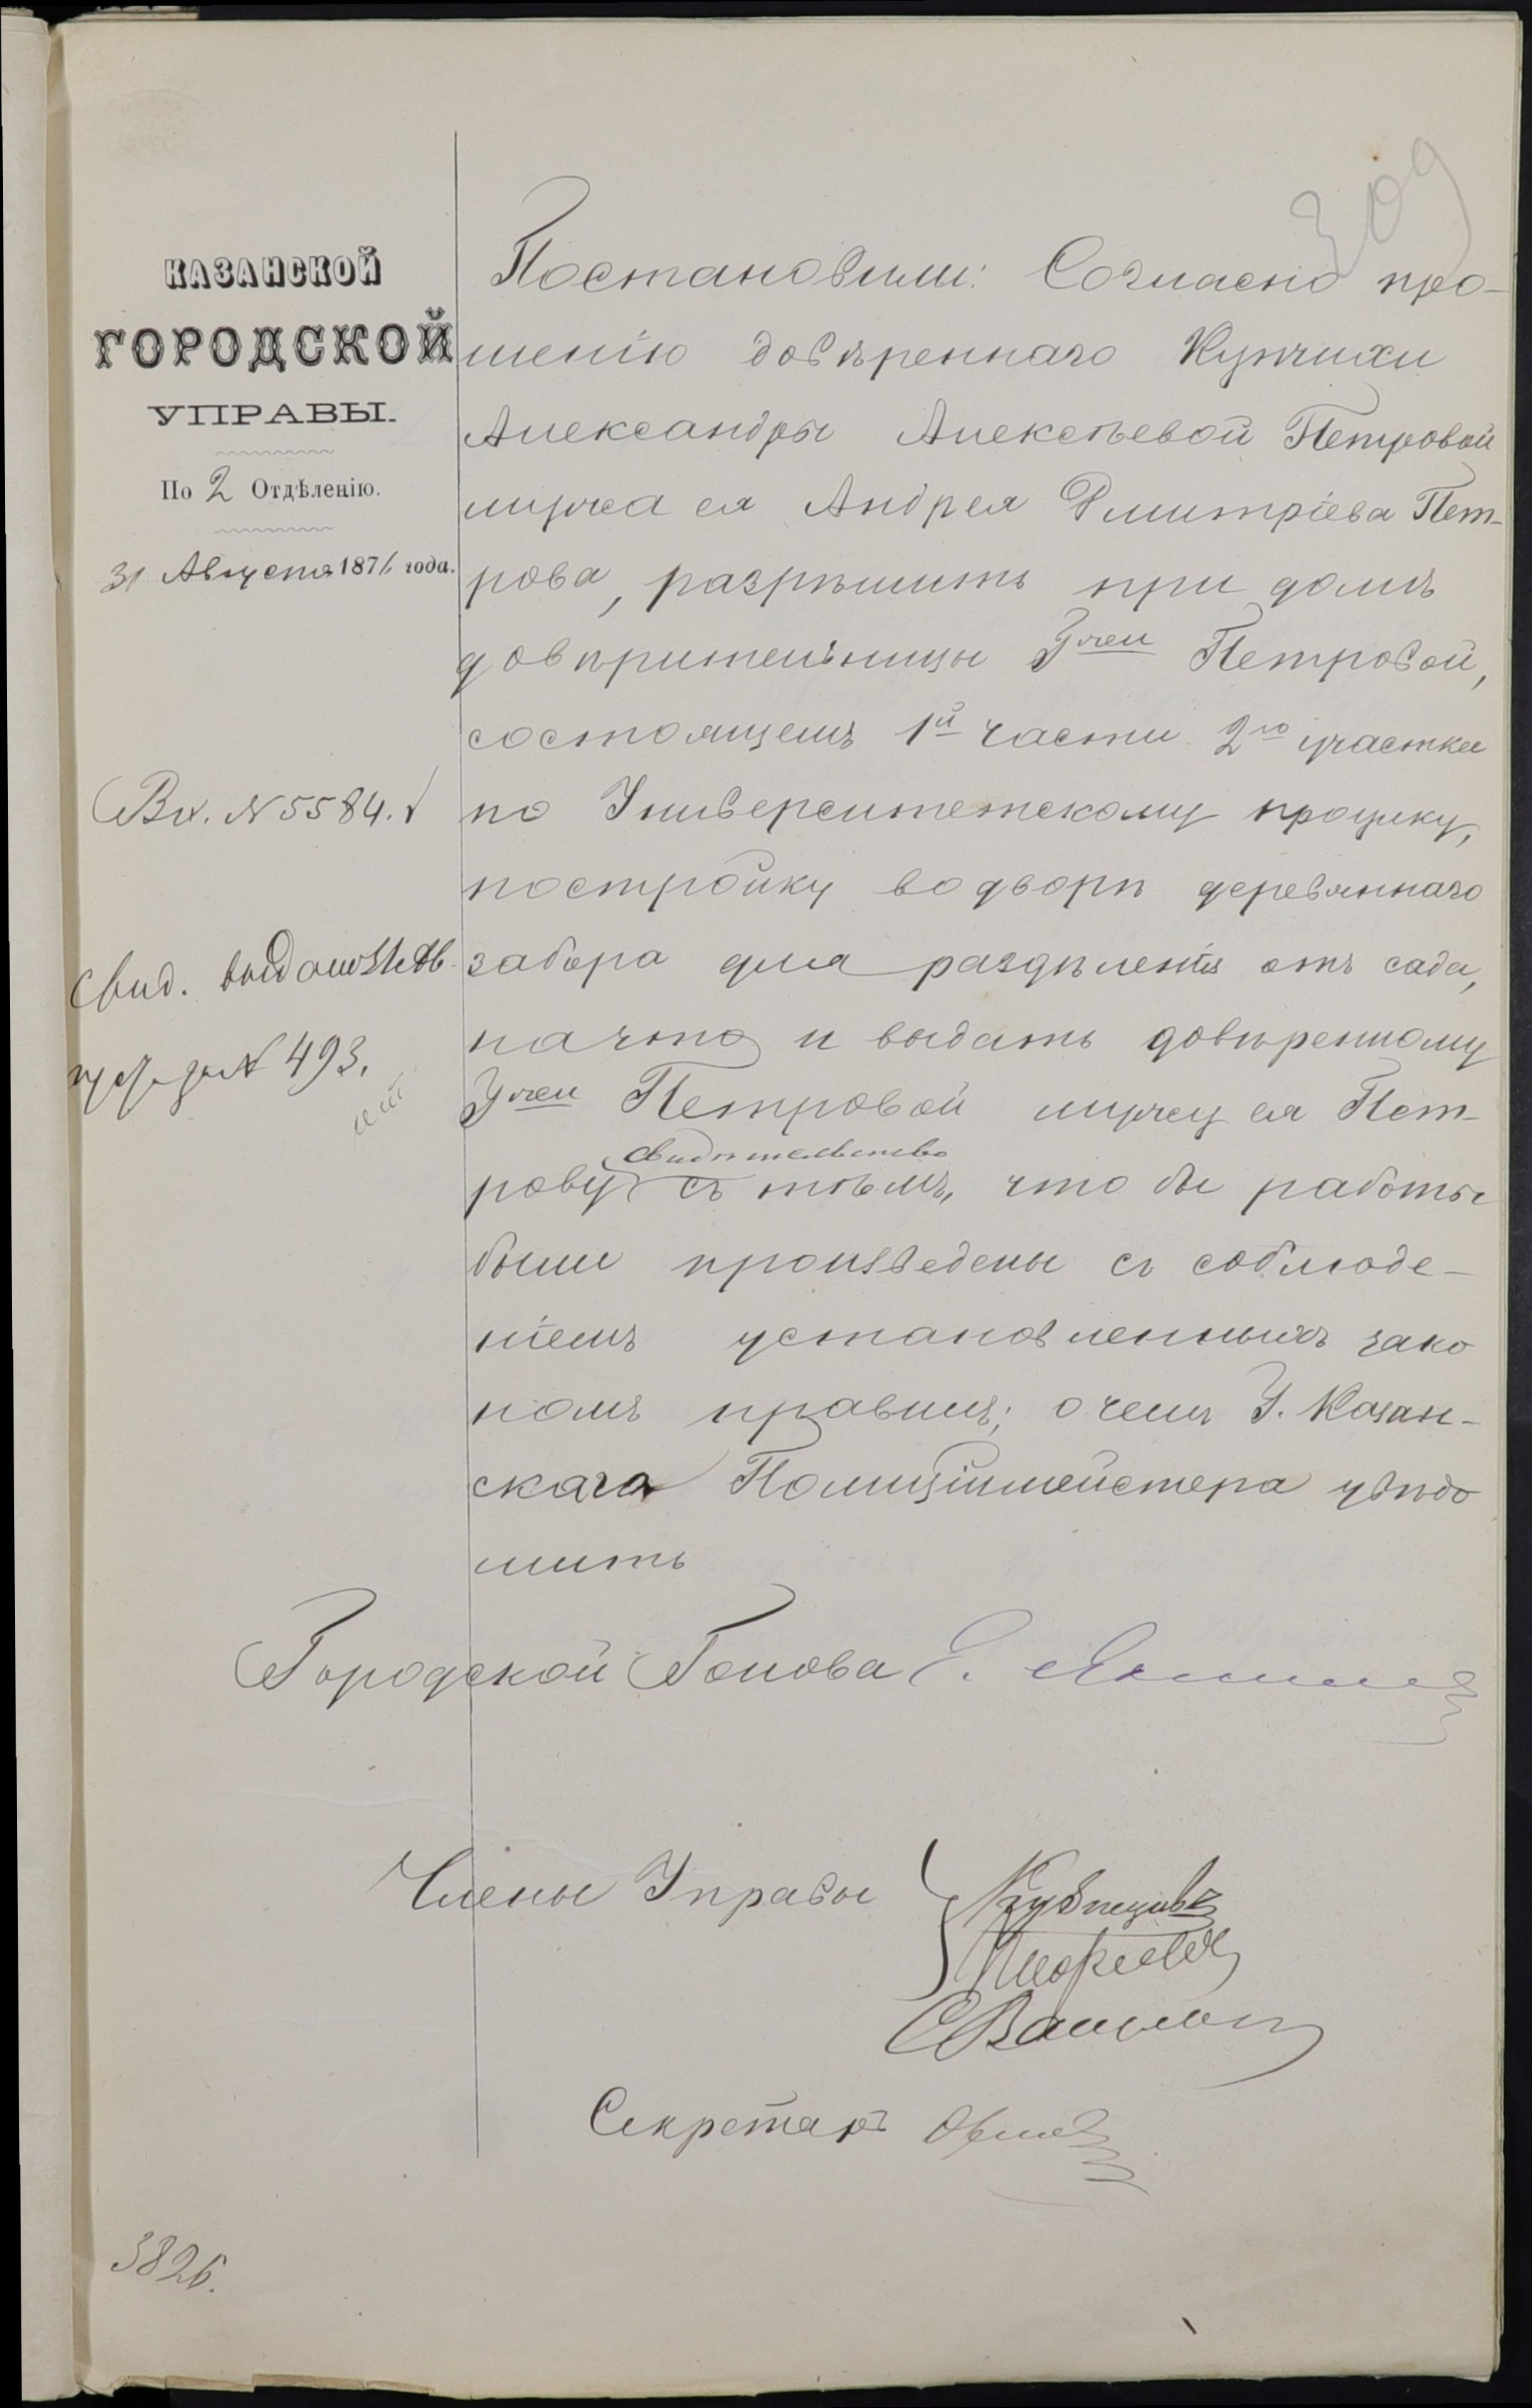 309
КАЗАНСКОЙ
ГОРОДСКОЙ
УПРАВЫ.
По 2 Отдѣленію.
31 Августа 1876 года.
Вх. № 5584.
Свид. выдано 31 Ав.
за № 493.
Постановили: Согласно про-
шенію довѣреннаго Купчихи
Александры Алексѣевой Петровой
мужа ея Андрея Дмитріева Пет-
рова, разрѣшить при домѣ
довѣрительницы Г-жи Петровой,
состоящемъ 1й части 2го участка
по Университетскому проулку,
постройку во дворѣ деревяннаго
забора для раздѣленія отъ сада,
на что и выдать довѣренному
Г-жи Петровой мужу ея Пет-
свидѣтельство
рову съ тѣмъ, что бы работы
были произведены съ соблюде-
ніемъ установленныхъ зако
номъ правилъ; о чемъ Г. Казан-
скаго Полиціймейстера увѣдо
мить
Городской Голова Е. Янишъ
Члены Управы
Кузнецовъ
Секретарь
3826.